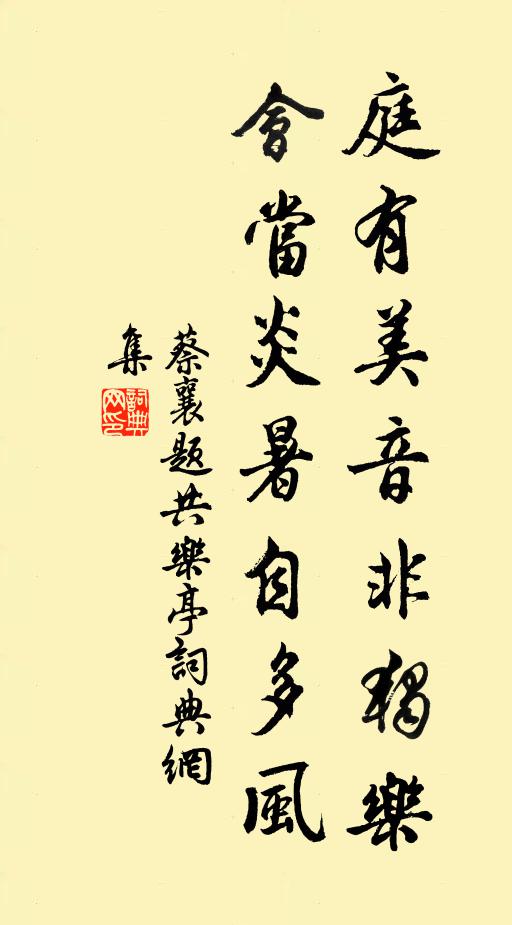 庭有美音非獨樂
會當炎暑自多風
蔡襄題共樂亭詞典網
集
詞典
网印